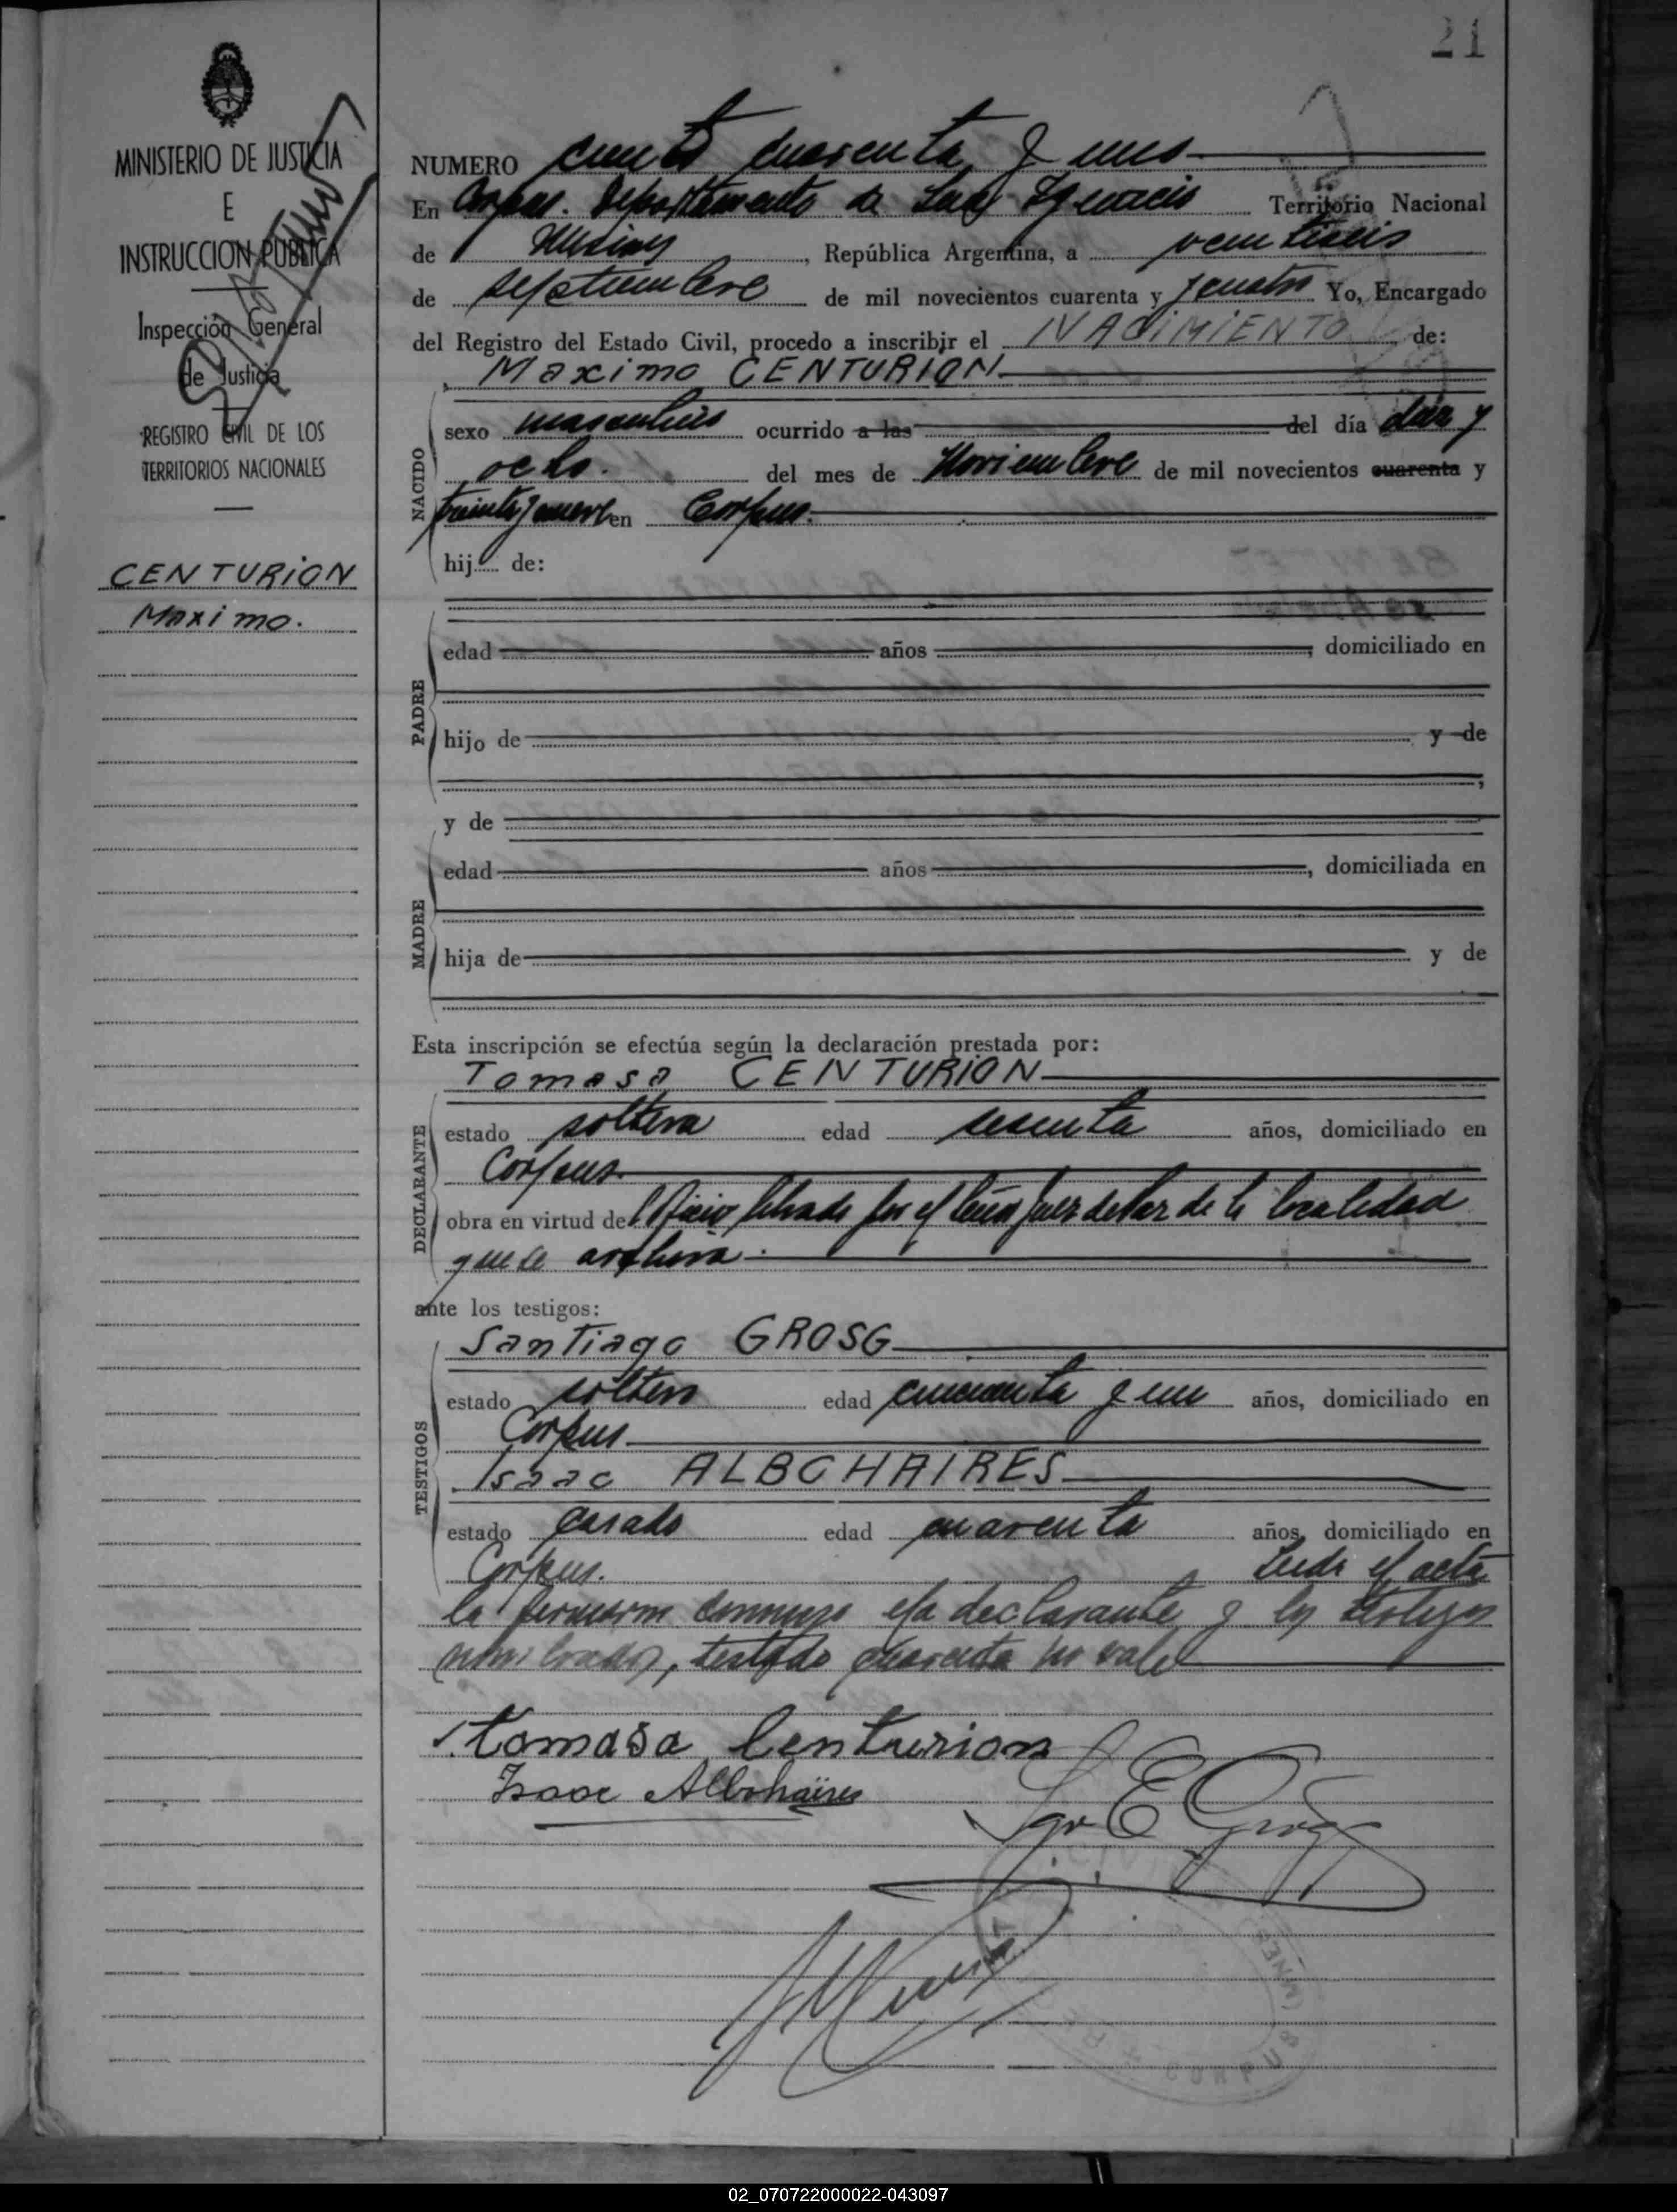 21
MINISTERIO DE JUSTICIA
E
INSTRUCCION PUBLICA
Inspección General
de Justicia
REGISTRO CIVIL DE LOS
TERRITORIOS NACIONALES
CENTURION
Maximo.
NUMERO ciento cuarenta y uno
En Corpus. Departamento de San Ignacio Territorio Nacional
de Misiones, República Argentina, a veintiseis
de septiembre de mil novecientos cuarenta y cuatro Yo, Encargado
del Registro del Estado Civil, procedo a inscribir el NACIMIENTO de:
Maximo CENTURION
NACIDO
sexo masculino ocurrido a las del día diez y
ocho. del mes de Noviembre de mil novecientos cuarenta y
treinta y nueve en Corpus.
hij de:
PADRE
edad años, domiciliado en
hijo de y de
y de
MADRE
edad años, domiciliada en
hija de y de
Esta inscripción se efectúa según la declaración prestada por:
Tomasa CENTURION
DECLARANTE
estado soltera edad sesenta años, domiciliado en
Corpus
obra en virtud de Oficio librado por el Juez de Paz de la localidad
que se archiva.
ante los testigos:
TESTIGOS
Santiago GROSG
estado soltero edad cincuenta y un años, domiciliado en
Corpus
Isaac ALBOHAIRES
estado casado edad cuarenta años, domiciliado en
Corpus. Leida el acta
la firmaron conmigo la declarante y los testigos
nombrados, testado cuarenta no vale
Tomasa Centurion
Isaac Albohaires
Sgo E Grosg
CORPUS
02_070722000022-043097